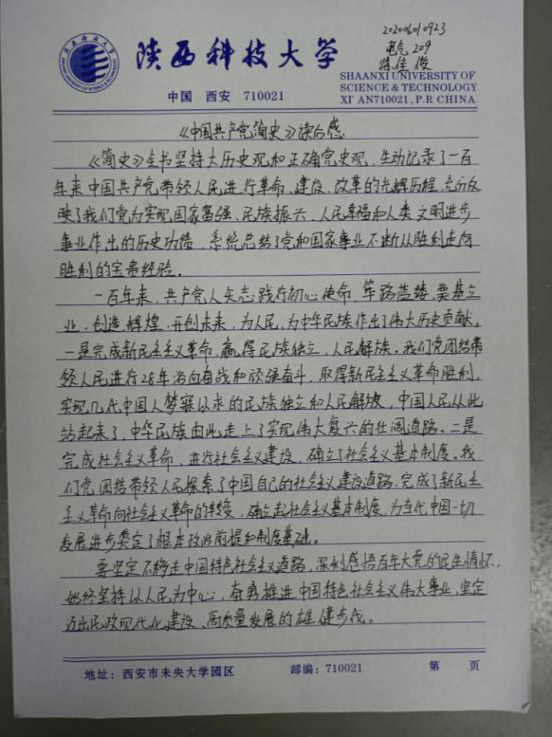 20206010923
电气209
陕西科技大学
SHAANXI UNIVERSITY OF
SCIENCE & TECHNOLOGY
XI'AN710021, P.R CHINA
中国 西安 710021
《中国共产党简史》读后感
《简史》全书坚持大历史观和正确党史观,生动记录了一百
年来中国共产党带领人民进行革命、建设、改革的光辉历程,充分反
映了我们党为实现国家富强、民族振兴、人民幸福和人类文明进步
事业作出的历史功绩,系统总结了党和国家事业不断从胜利走向
胜利的宝贵经验。
一百年来,共产党人矢志践行初心使命,筚路蓝缕,奠基立
业,创造辉煌,开创未来,为人民,为中华民族作出了伟大历史贡献。
一是完成新民主主义革命,赢得民族独立,人民解放。我们党团结带
领人民进行28年浴血奋战和顽强奋斗,取得新民主主义革命胜利,
实现几代中国人梦寐以求的民族独立和人民解放,中国人民从此
站起来了,中华民族由此走上了实现伟大复兴的壮阔道路。二是
完成社会主义革命,进行社会主义建设,确立了社会主义基本制度。我
们党团结带领人民探索了中国自己的社会主义建设道路,完成了新民主
主义革命向社会主义革命的转变,确立起社会主义基本制度,为当代中国一切
发展进步奠定了根本政治前提和制度基础。
要坚定不移走中国特色社会主义道路,深刻感悟百年大党的民生情怀,
始终坚持以人民为中心,奋勇推进中国特色社会主义伟大事业,坚定
迈出民政现代化建设、高质量发展的雄健步伐。
地址:西安市未央大学园区 邮编:710021 第 页